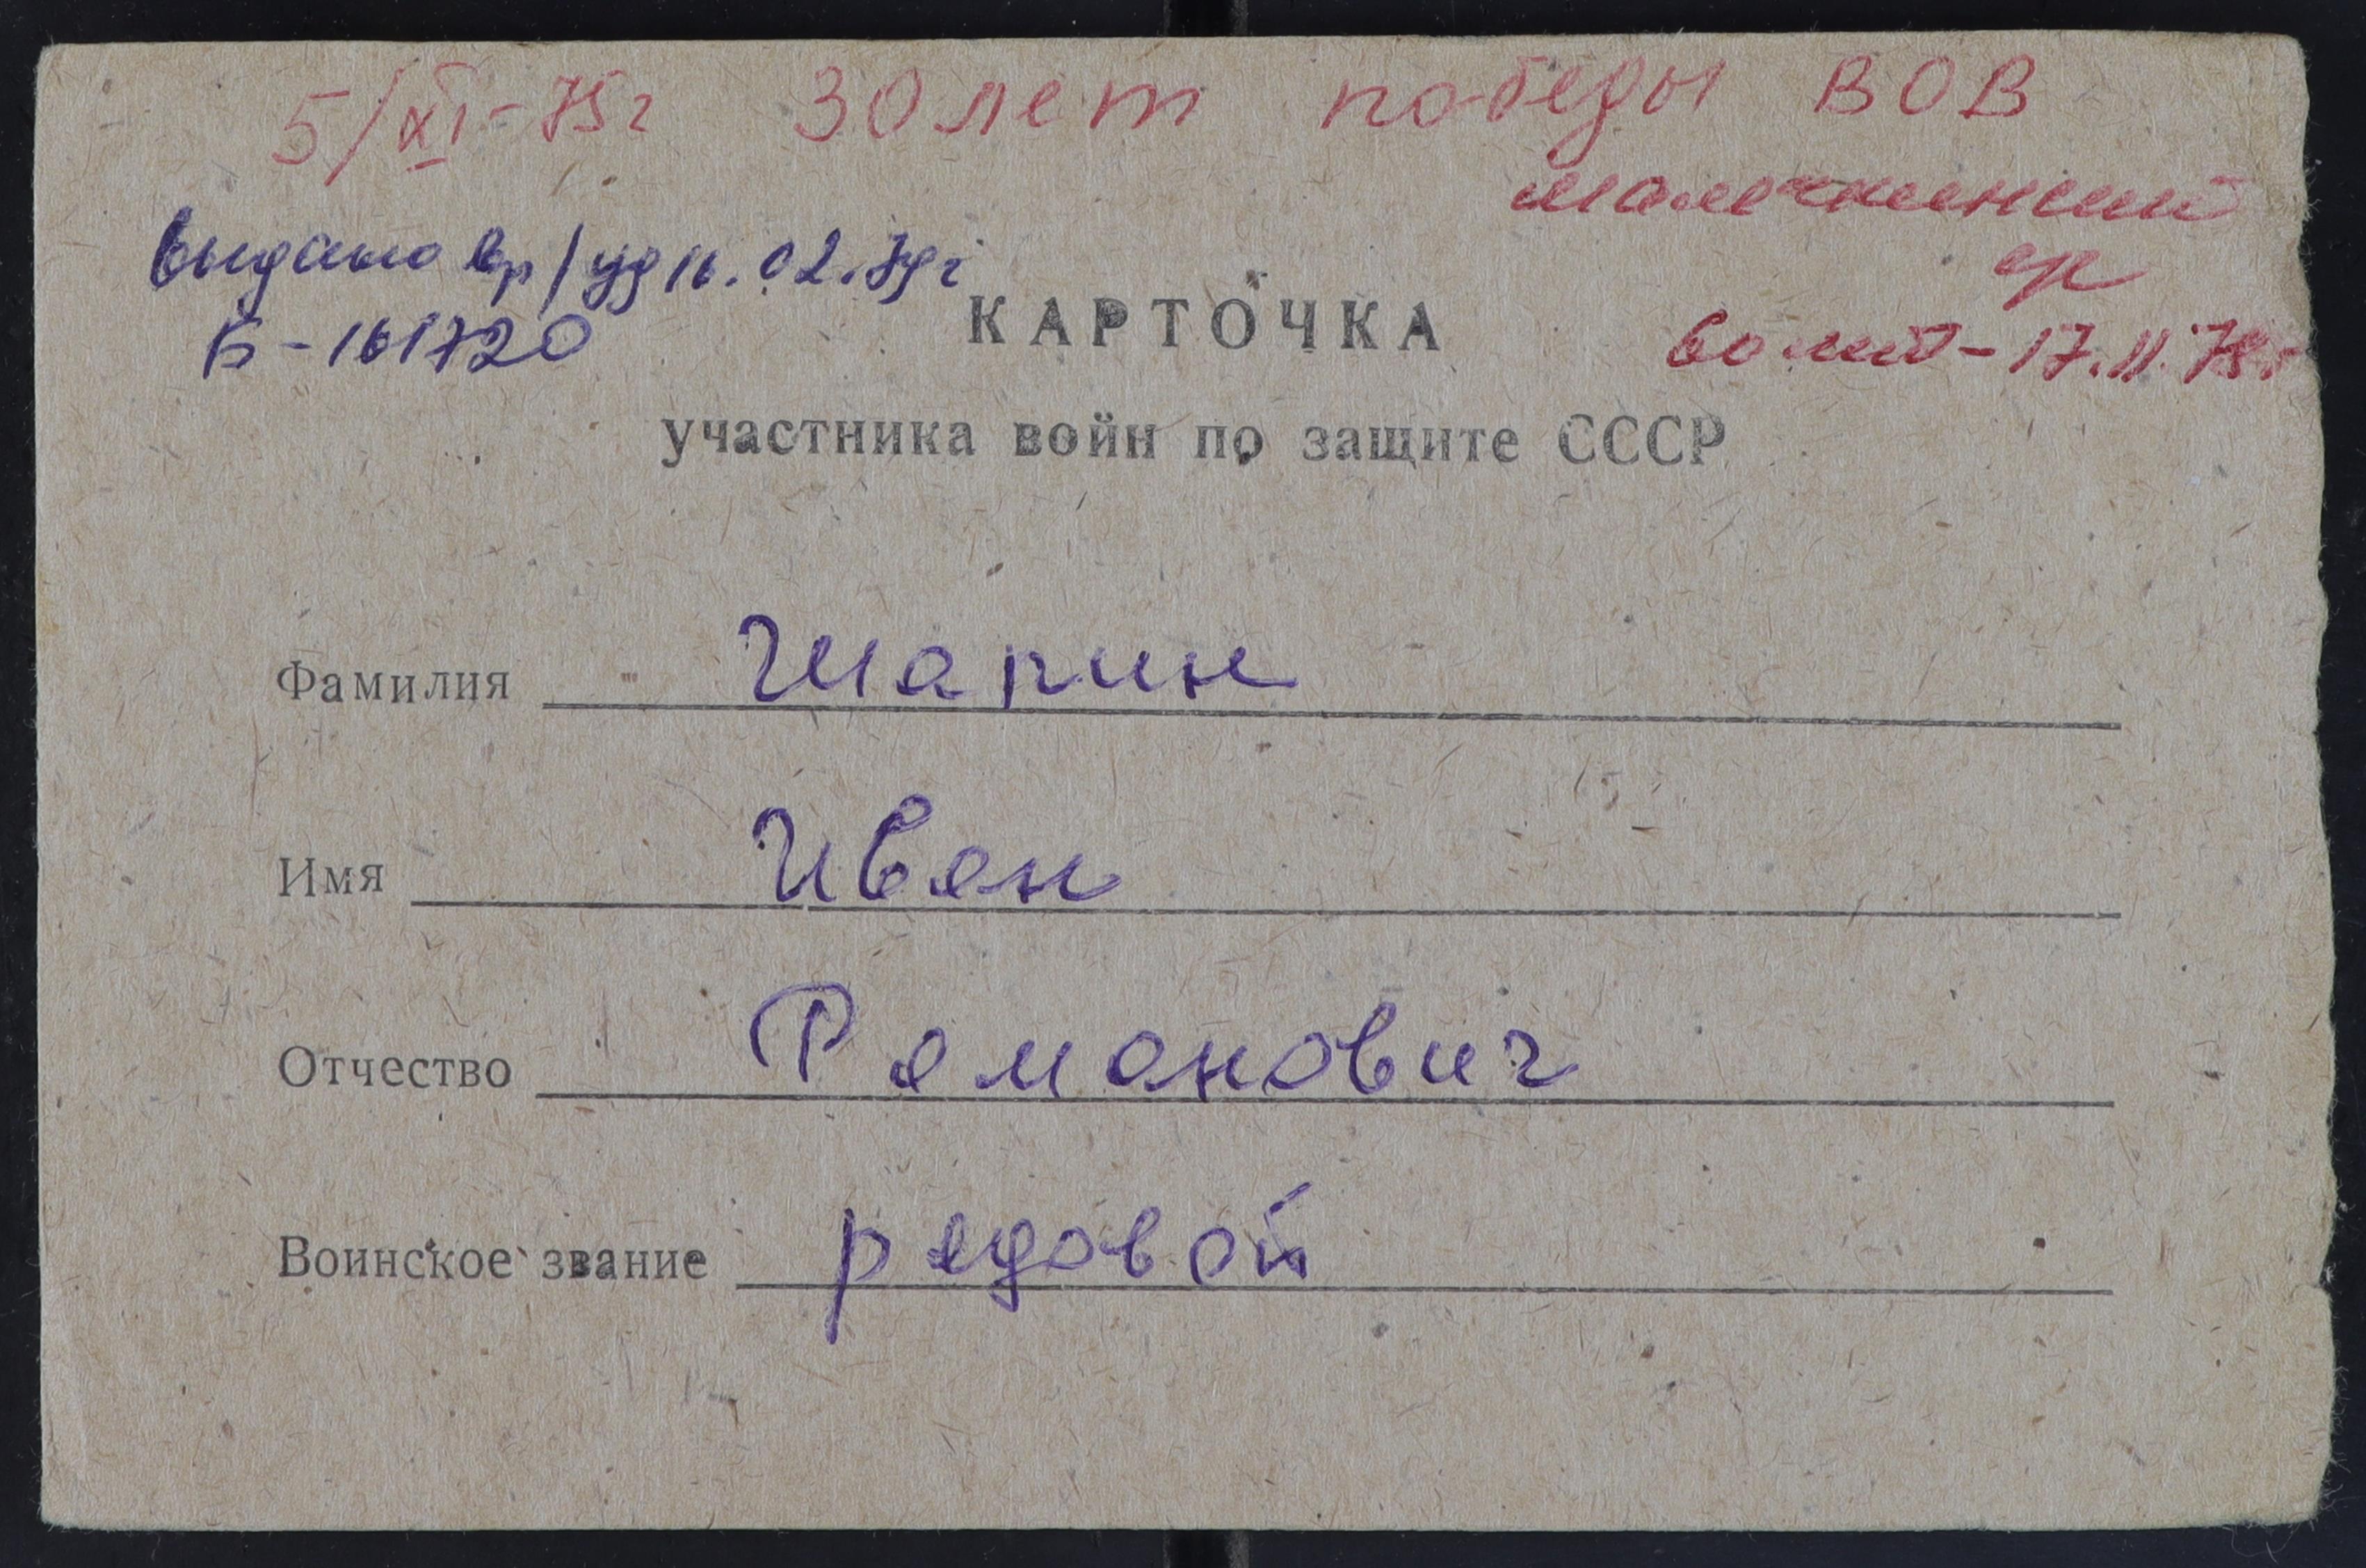 5/XI-75г 30 лет победы ВОВ
выдано вр/уд 16.02.79г
Б-161720
КАРТОЧКА
17.11.78г
участника войн по защите СССР
Фамилия Шарин
Имя Иван
Отчество Романович
Воинское звание рядовой